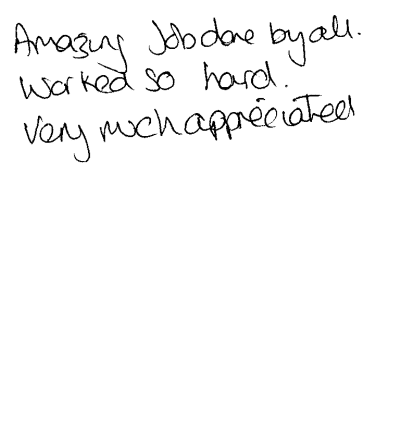 Amazing Job done by all.
Worked so hard.
Very much appreciated